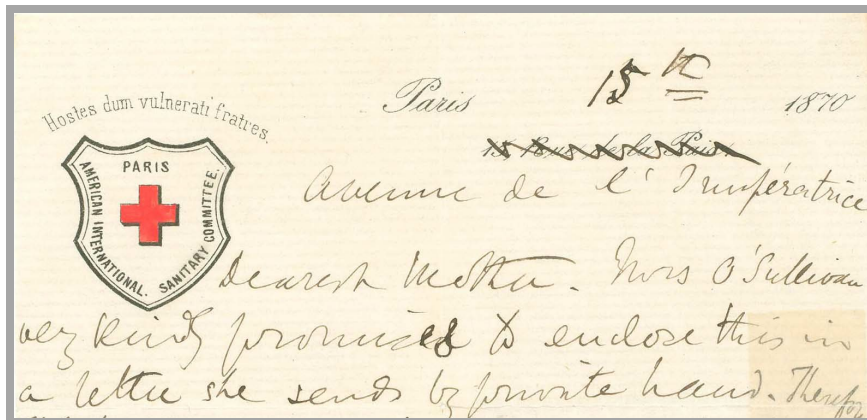 Hostes dum vulnerati fratres.
PARIS
AMERICAN INTERNATIONAL. SANITARY COMMITTEE.
Paris 15th 1870
15 Rue de la Paix.
Avenue de l'Impératrice
Dearest Mother. Mrs O'Sullivan
very kindly promises to enclose this in
a letter she sends by private hand.